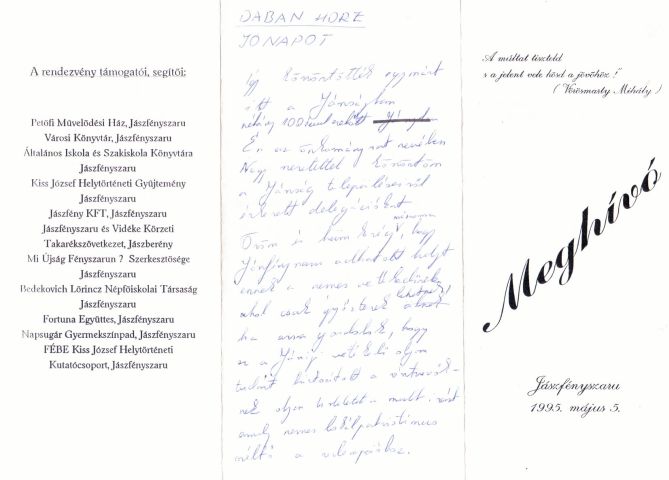 A rendezvény támogatói, segítői:
Petőfi Művelődési Ház, Jászfényszaru
Városi Könyvtár, Jászfényszaru
Általános Iskola és Szakiskola Könyvtára
Jászfényszaru
Kiss József Helytörténeti Gyűjtemény
Jászfényszaru
Jászfény KFT, Jászfényszaru
Jászfényszaru és Vidéke Körzeti
Takarékszövetkezet, Jászberény
Mi Újság Fényszarun ? Szerkesztősége
Jászfényszaru
Bedekovich Lőrincz Népfőiskolai Társaság
Jászfényszaru
Fortuna Együttes, Jászfényszaru
Napsugár Gyermekszínpad, Jászfényszaru
FÉBE Kiss József Helytörténeti
Kutatócsoport, Jászfényszaru
DABAN HORZ
JONAPOT
Így köszöntötték egymást
itt a Jászságban
néhány 100
Én az önkormányzat nevében
Nagy szeretettel köszöntöm
a Jászság településeiről
érkezett delegációkat
Öröm és hogy
adhatott helyt
ennek a nemes vetélkedőnek
ahol csak győztesek
ha arra gondolok, hogy
ez a Jász vetélkedő olyan
tudást a
olyan a múlt
amely nemes lokálpatriotizmus
méltó a
A múltat tiszteld
s a jelent vele kösd a jövőhöz !"
( Vörösmarty Mihály )
Meghívó
Jászfényszaru
1995. május 5.